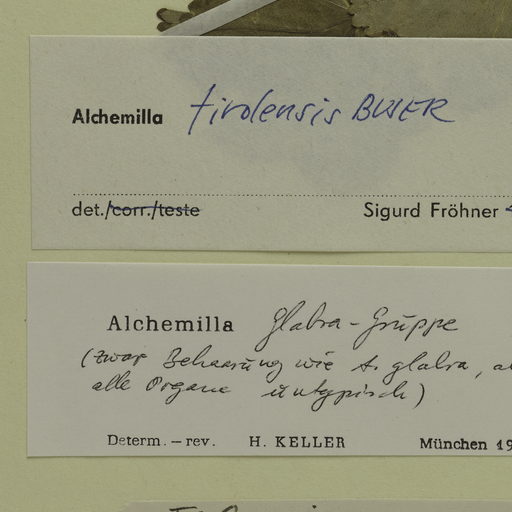 Alchemilla tirolensis BUSER
det./corr./teste Sigurd Fröhner
Alchemilla Glabra-Gruppe
(zwar Behaarung wie A. glabra,
alle Organe untypisch)
Determ. – rev. H. KELLER München 19